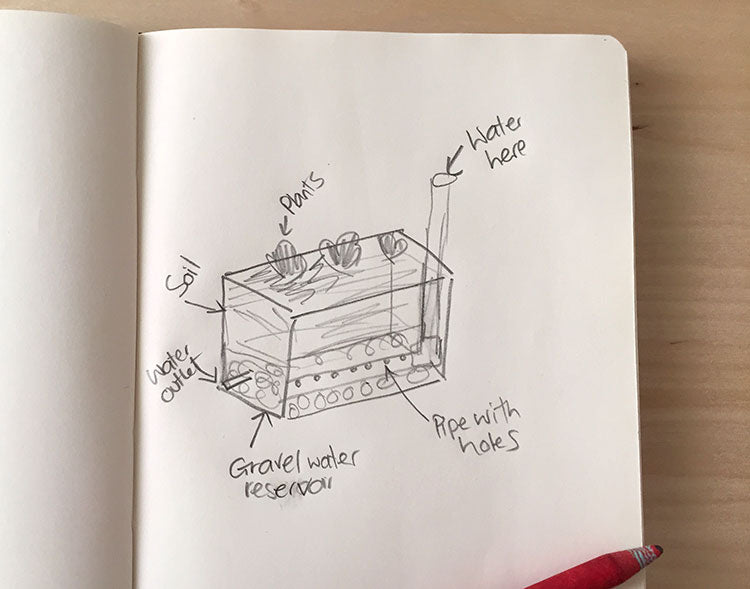 Water
here
Plants
Soil
Water
outlet
Pipe with
holes
Gravel water
reservoir